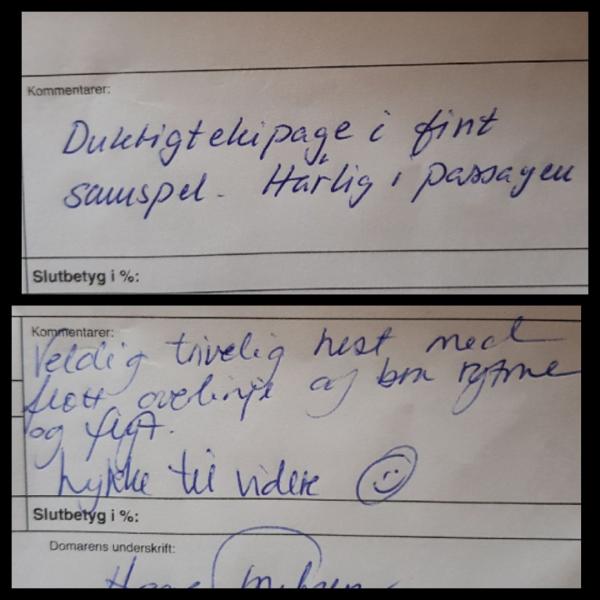 Kommentarer:
Duktigt ekipage i fint
samspel. Härlig i passagen
Slutbetyg i %:
Kommentarer:
Veldig trivelig hest med
flott overlinje og bra rytme
og flyt.
Lykke til videre
Slutbetyg i %:
Domarens underskrift: